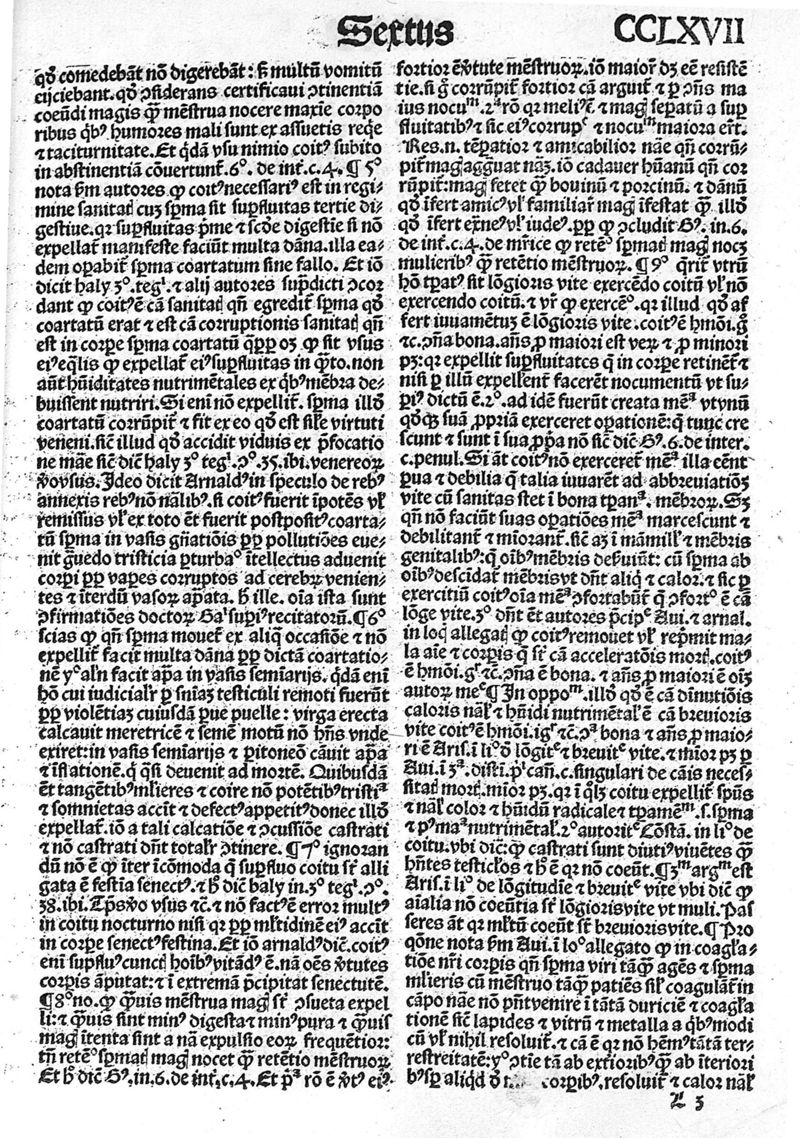 Sextus
CCLXVII
qḋ comedebāt nō digerebāt: sꝫ multū vomitū
eijciebant. qḋ ↄsiderans certificaui ↄtinentiā
coeūdi magis ꝙ̄ mēstrua nocere maxīe corpo
ribus qͥbꝰ humores mali sunt ex assuetis reqͥe
⁊ taciturnitate. Et qͥdā vsu nimio coitꝰ subito
in abstinentiā cōuertunt̄. 6°. de inẗ. c. 4. ¶ 5°
nota ẜm autores ꝙ coitꝰ necessariꝰ est in regi-
mine sanitaꝭ cuꝫ spma sit suꝑfluitas tertie di-
gestiue. qꝛ suꝑfluitas pͥme ⁊ scḋe digestiē si nō
expellat̄ manifeste faciūt multa dāna. illa ea-
dem oꝑabit̄ spma coartatum sine fallo. Et iō
dicit haly 3°. tegͥ. ⁊ alij autores supͣdicti ↄcor
dant ꝙ coitꝰ ē cā sanitaꝭ qn̄ egredit̄ spma qḋ
coartatū erat ⁊ est cā corruptionis sanitaꝭ qn̄
est in corꝑe spma coartatū ꝙ sit vsus
eiꝰ eqͣlis ꝙ expellat̄ eiꝰ suꝑfluitas in qͣto. non
aūt hūiditates nutrimētales ex qͥbꝰ mēbra de-
buissent nutriri. Si eni nō expellit̄. spma illḋ
coartatū corrūpit̄ ⁊ fit ex eo qḋ est sil̄e virtuti
veneni. sic̄ illud qḋ accidit viduis ex p̄focatio
ne mat̄e sic̄ dic̄ haly 3° tegͥ. ↄ°. 35. ibi. venereoꝝ
v̓ovsus. Ideo dicit Arnaldꝰ in speculo de rebꝰ
annexis rebꝰ nō nālibꝰ. si coitꝰ fuerit īpotēs vl̓
remissus vl̓ ex toto ēt fuerit postpositꝰ coarta-
tū spma in vasis gn̄atiōis ꝓp̄ pollutiōes eue-
nit gͣuedo tristicia ꝑturba° ītellectus aduenit
corꝑi ꝓp̄ vaꝑes corruptos ad cerebꝝ venien-
tes ⁊ īterdū vasoꝝ ap̄ata. h̄ ille. oīa ista sunt
ↄfirmatiōes doctoꝝ Gaͥ supͥꝰ recitatorū. ¶ 6°
scias ꝙ qn̄ spma mouet̄ ex aliqͣ occasiōe ⁊ nō
expellit̄ facit multa dāna ꝓp̄ dictā coartatio-
nē. Yͦ aln̄ facit ap̄a in vasis semīarijs. qͥdā eni
hō cui iudicialͬ ꝑ sn̄iaꝫ testiculi remoti fuerūt
ꝓp̄ violētiaꝫ cuiusdā ꝑue puelle: virga erecta
calcauit meretricē ⁊ semē motū nō hn̄s vnde
exiret: in vasis semīarijs ⁊ ꝑitoneo cāuit ap̄a
⁊ īflationē. qͥ qͣsi deuenit ad mortē. Quibusdā
ēt tangētibꝰ mlieres ⁊ coire nō potētibꝰ tristiͣ
⁊ somnietas accīt ⁊ defectꝰ appetitꝰ donec illḋ
expellat̄. iō a tali calcatiōe ⁊ ↄcussiōe castrati
⁊ nō castrati dn̄t totalͬ ↄtinere. ¶ 7° ignoran
dū nō ē ꝙ īter īcōmoda qͣ suꝑfluo coitu sͬ alli
gata ē festīa senectꝰ. ⁊ h̄ dic̄ haly in. 3° tegͥ. ↄ°.
38. ibi. Tp̄sv̓o vsus ⁊c̄. ⁊ nō factꝰ ē error multꝰ
in coitu nocturno nisi qꝛ ꝓp̄ mltidinē eiꝰ accīt
in corꝑe senectꝰ festina. Et iō arnaldꝰ dic̄. coitꝰ
eni suꝑfluꝰ cuncꝭ hoībꝰ vitādꝰ ē. nā oēs v̓tutes
corꝑis aputat: ⁊ ī extremā pͥcipitat senectutē.
¶ 8° no. ꝙ ꝙͣuis mēstrua magꝭ sͬ ↄsueta expel
li: ⁊ ꝙͣuis sint minꝰ digesta ⁊ minꝰ pura ⁊ ꝙͣuis
magꝭ ītenta sint a nā expulsio eoꝝ frequētior:
tn̄ retē° spmaꝭ magꝭ nocet ꝙ̄ retētio mēstruoꝝ
Et h̄ dic̄ Gͣ. in. 6. de inẗ. c. 4. Et pͣ rō ē v̓tꝰ eiꝰ
fortior ēv̓tute mēstruoꝝ. iō maiorͥ dꝫ eē resistē
tie. si gͦ corrūpit̄ fortior cā arguit̄ ⁊ ꝑ ↄn̄s ma
ius nocum̄. 2ͣ rō qꝛ meliꝰ ē ⁊ magꝭ seꝑatū a suꝑ
fluitatibꝰ ⁊ sic eiꝰ corrupͨ ⁊ nocuᵐ maiora eīt.
Res. n. tēperatior ⁊ amicabilior nāe qn̄ corrū-
pit̄ magꝭ aggͣuat nāꝫ. iō cadauer hūanū qn̄ cor
rūpit̄: magꝭ fetet ꝙ̄ bouinū ⁊ porcinū. ⁊ dānū
qḋ īfert amicꝰ vl̓ familiarͥ magꝭ īfestat ꝙ̄ illḋ
qḋ īfert exn̄eꝰ vl̓ iudeꝰ. ꝓp̄ ꝙ ↄcludit Gͣ. in. 6.
de inẗ. c. 4. de mr̄ice ꝙ retē° spmaꝭ magꝭ nocꝫ
mulieribꝰ ꝙ̄ retētio mēstruoꝝ. ¶ 9° qͥrit̄ vtrū
hō tp̄atꝰ sit lōgioris vite exercēdo coitū vl̓ nō
exercendo coitū. ⁊ vr̄ ꝙ exercē°. qꝛ illud qḋ af
fert iuuamētuꝫ ē lōgioris vite. coitꝰ ē hmōi. gͦ
⁊c̄. ↄn̄a bona. ans̄ ꝓ maiori est verͣ ⁊ ꝓ minori
pꝫ: qꝛ expellit suꝑfluitates qͣ in corꝑe retinēt̄ ⁊
nisi ꝑ illū expellent̄ facerēt nocumētū vt su-
pͥꝰ dictū ē. 2°. ad idē fuerūt creata mēͣ vtvnū
qḋqꝫ suā ꝓpriā exerceret oꝑationē: qͥ tunc cre
scunt ⁊ sunt ī sua ꝓpͣa nō sic̄ dic̄ Gͣ. 6. de inter.
c. penul. Si āt coitꝰ nō exerceret̄ mēͣ illa cēnt̄
ꝑua ⁊ debilia qͥ talia iuuarēt ad abbreuiatiōꝫ
vite cū sanitas stet ī bona tp̄anͣ. mēbroꝝ. Sꝫ
qn̄ nō faciūt suas oꝑatiōes mēͣ marcescunt ⁊
debilitant̄ ⁊ mīorant̄. sic̄ aꝫ ī māmill̓ ⁊ mēbris
genitalibꝰ: qͥ oībꝰ mēbris deſuiūt: cū spma ab
oībꝰ descīdat̄ mēbrisvt dn̄t aliqͥ ⁊ calor. ⁊ sic ꝑ
exercitiū coitꝰ oīa mēͣ ↄfortabūt̄ qͥ ↄfort° ē cā
lōge vite. 3° dn̄t ēt autores pͥcipͤ Aui. ⁊ arnal.
in locꝭ allegaꝭ ꝙ coitꝰ remouet vl̓ repͥmit ma-
la aīe ⁊ corꝑis qͥ sͬ cā acceleratōis morꝭ. coitꝰ
ē hmōi. gͦ ⁊c̄. ↄn̄a ē bona. ⁊ ans̄ ꝓ maiori ē oīꝫ
autoꝝ meͨ ¶ In oppoᵐ. illḋ qḋ ē cā dīnutiōis
caloris nāꝭ ⁊ hūidi nutrimētaꝭ ē cā breuioris
vite coitꝰ ē hmōi. igͥ ⁊c̄. ↄͣ bona ⁊ ans̄. ꝓ maio-
ri ē Aris. ī liͦ ḋ lōgit̄ ⁊ breuit̄ vite. ⁊ mīor pꝫ ꝑ
Aui. ī 3ͣ. disti. pͥ cañ. c. singulari de cāis neces-
sitaꝭ morꝭ. mīor pꝫ. qꝛ ī qͣlꝫ coitu expellit̄ spūs
⁊ nāꝭ color ⁊ hūidū radicale ⁊ tp̄amēᵐ. s. spma
⁊ pͥꝰ maͣ nutrimētaꝭ. 2° autoritͤ Cōstā. in liͦ de
coitu. vbi dic̄: ꝙ castrati sunt diutiꝰ viuētes ꝙ̄
hn̄tes testiclos ⁊ h̄ ē qꝛ nō coeūt. ¶ 3ᵐ argᵐ est
Aris. ī liͦ de lōgitudīe ⁊ breuitͤ vite vbi dic̄ ꝙ
aīalia nō coēuntia sͬ lōgioris vite vt muli. Pas
seres āt qꝛ mltū coeūt sͬ breuioris vite. ¶ Pro
qōne nota ẜm Aui. ī loͦ allegato ꝙ in coagla-
tiōe nr̄i corꝑis qn̄ spma viri tāqͣ agēs ⁊ spma
mlieris cū mēstruo tāqͣ patiēs sil̓ coagulāt̄ in
capo nāe nō pn̄tvenire ī tātā duriciē ⁊ coagla
tionē sic̄ lapides ⁊ vitrū ⁊ metalla a qͥbꝰ modi
cū vl̓ nihil resoluit̄. ⁊ cā ē qꝛ nō hēmꝰ tātā ter-
restreitatē: yͦ ↄtīe tā ab exteribꝰ ꝙͣ ab īteriori
bꝰ sp aliqḋ ḋ corꝑibꝰ. resoluit̄ ⁊ calor nāꝭ
L 3